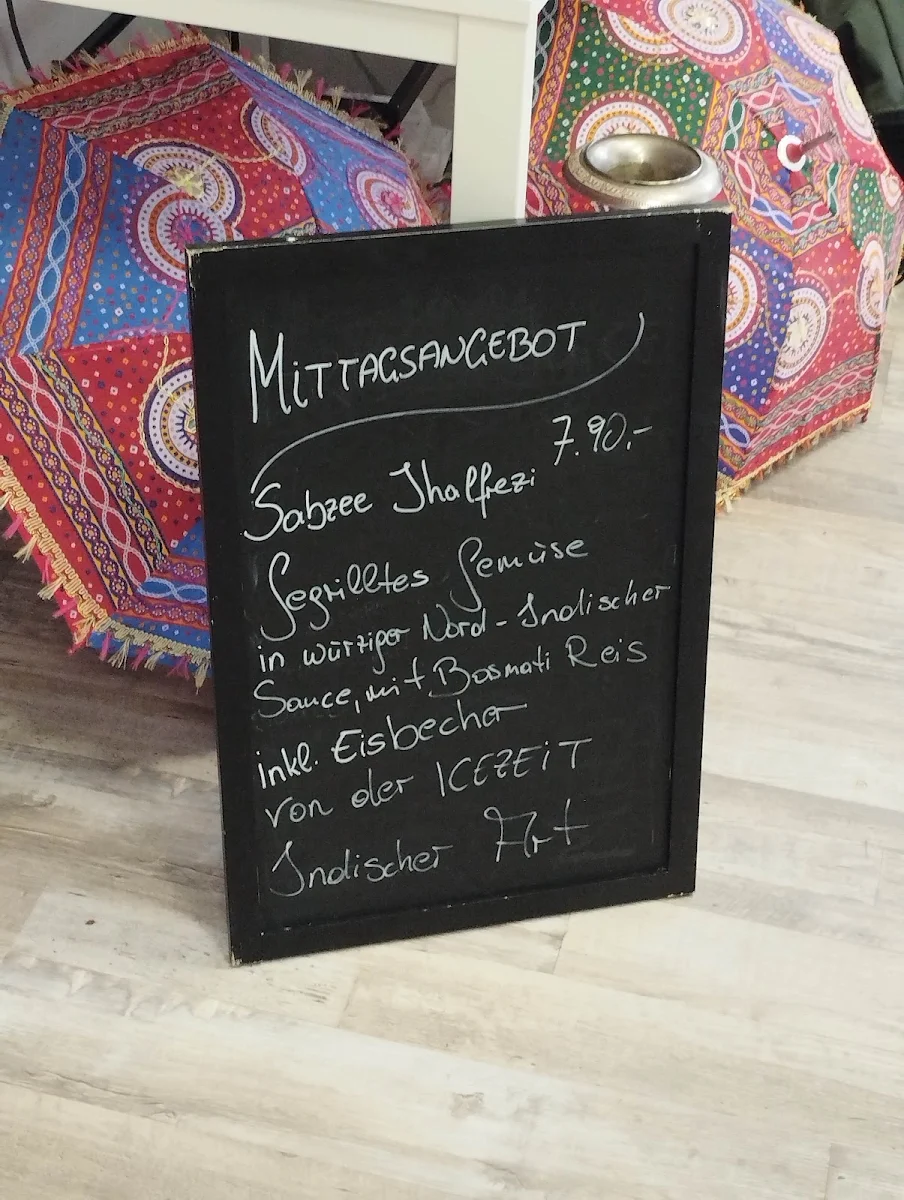 MITTAGSANGEBOT
7.90,-
Sabzee Jhalfrezi
Gegrilltes Gemüse
in würziger Nord-Indischer
Sauce, mit Basmati Reis
inkl. Eisbecher
von der ICEZEIT
Indischer Art